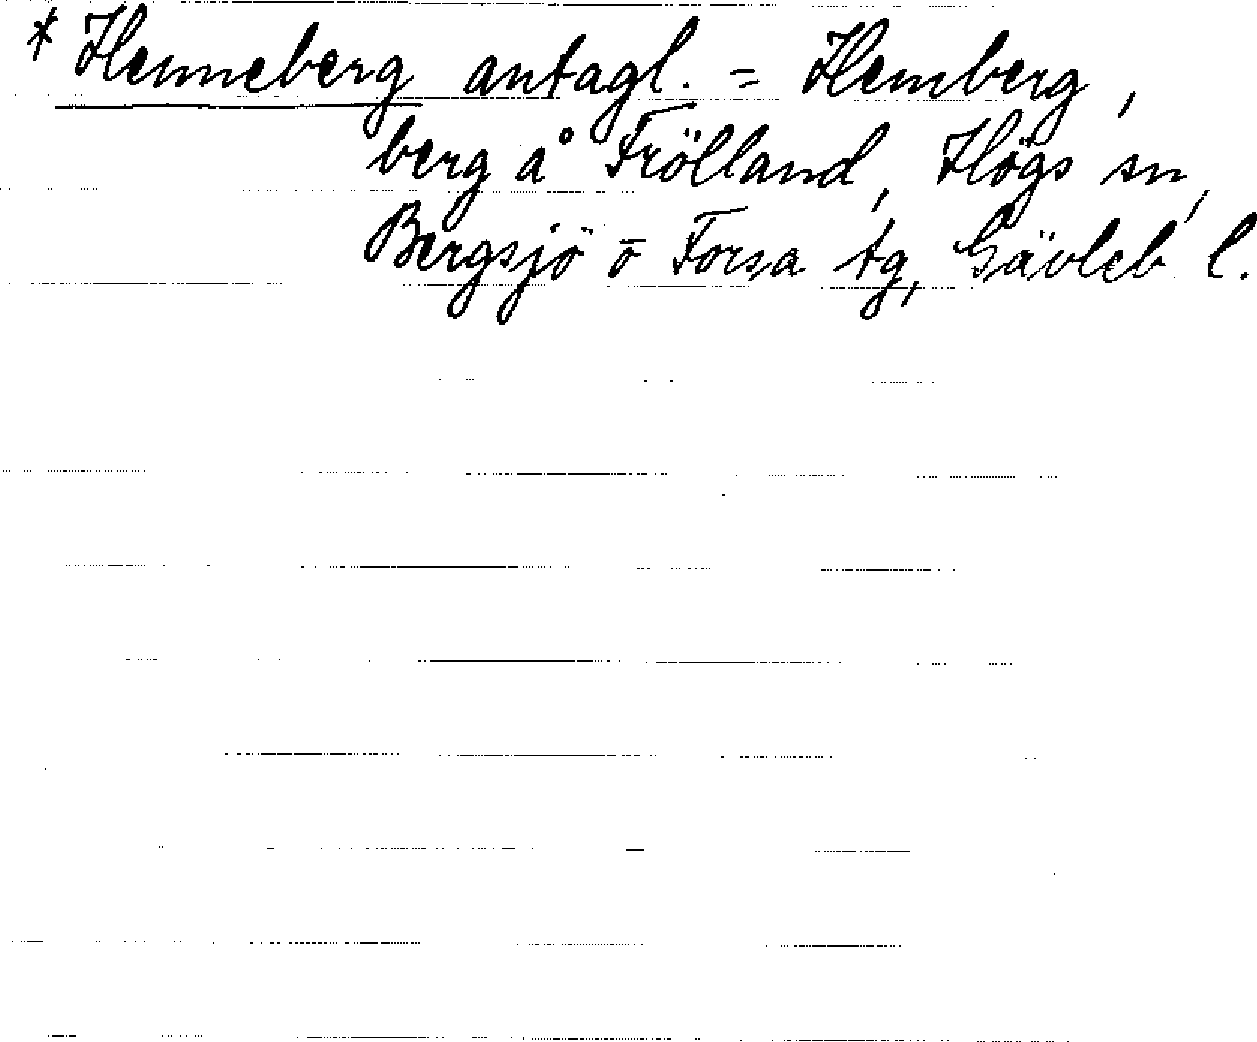 * Henneberg antagl. = Hemberg,
berg å Frölland, Högs sn,
Bergsjö o Forsa tg, Gävleb l.